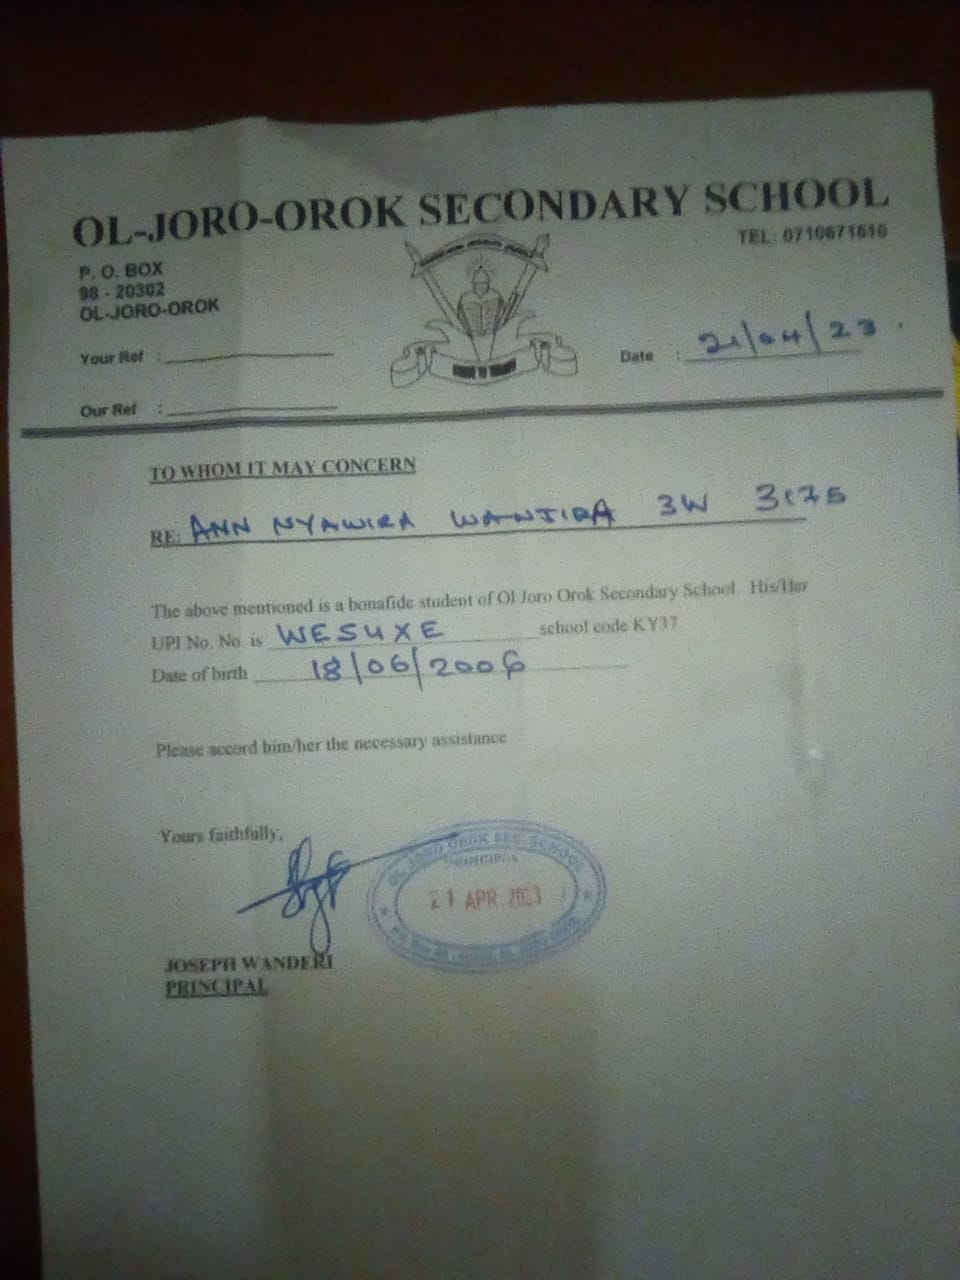 OL-JORO-OROK SECONDARY SCHOOL
TEL: 0710671610
P. O. BOX
98 - 20302
OL-JORO-OROK
Your Ref :
Date : 21/04/23
Our Ref :
TO WHOM IT MAY CONCERN
RE: ANN NYAWIRA WANJIRA 3W
The above mentioned is a bonafide student of Ol Joro Orok Secondary School. His/Her
UPI No. No. is WESUXE school code KY37
Date of birth 18/06/2006
Please accord him/her the necessary assistance
Yours faithfully,
OL JORO OROK SEC. SCHOOL
PRINCIPAL
21 APR 2023
JOSEPH WANDERI
PRINCIPAL